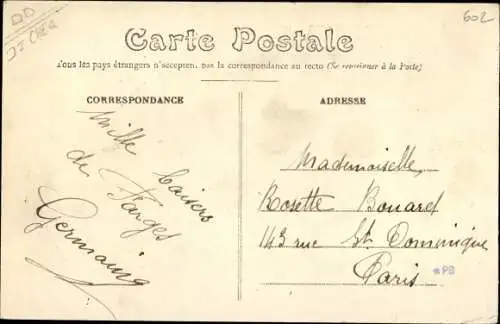 602
Carte Postale
Tous les pays étrangers n'acceptent pas la correspondance au recto (Se renseigner à la Poste)
CORRESPONDANCE
Mille baisers
de Farges
Germaine
ADRESSE
Mademoiselle,
Rosette Bouard
143 rue St Dominique
Paris
*PB